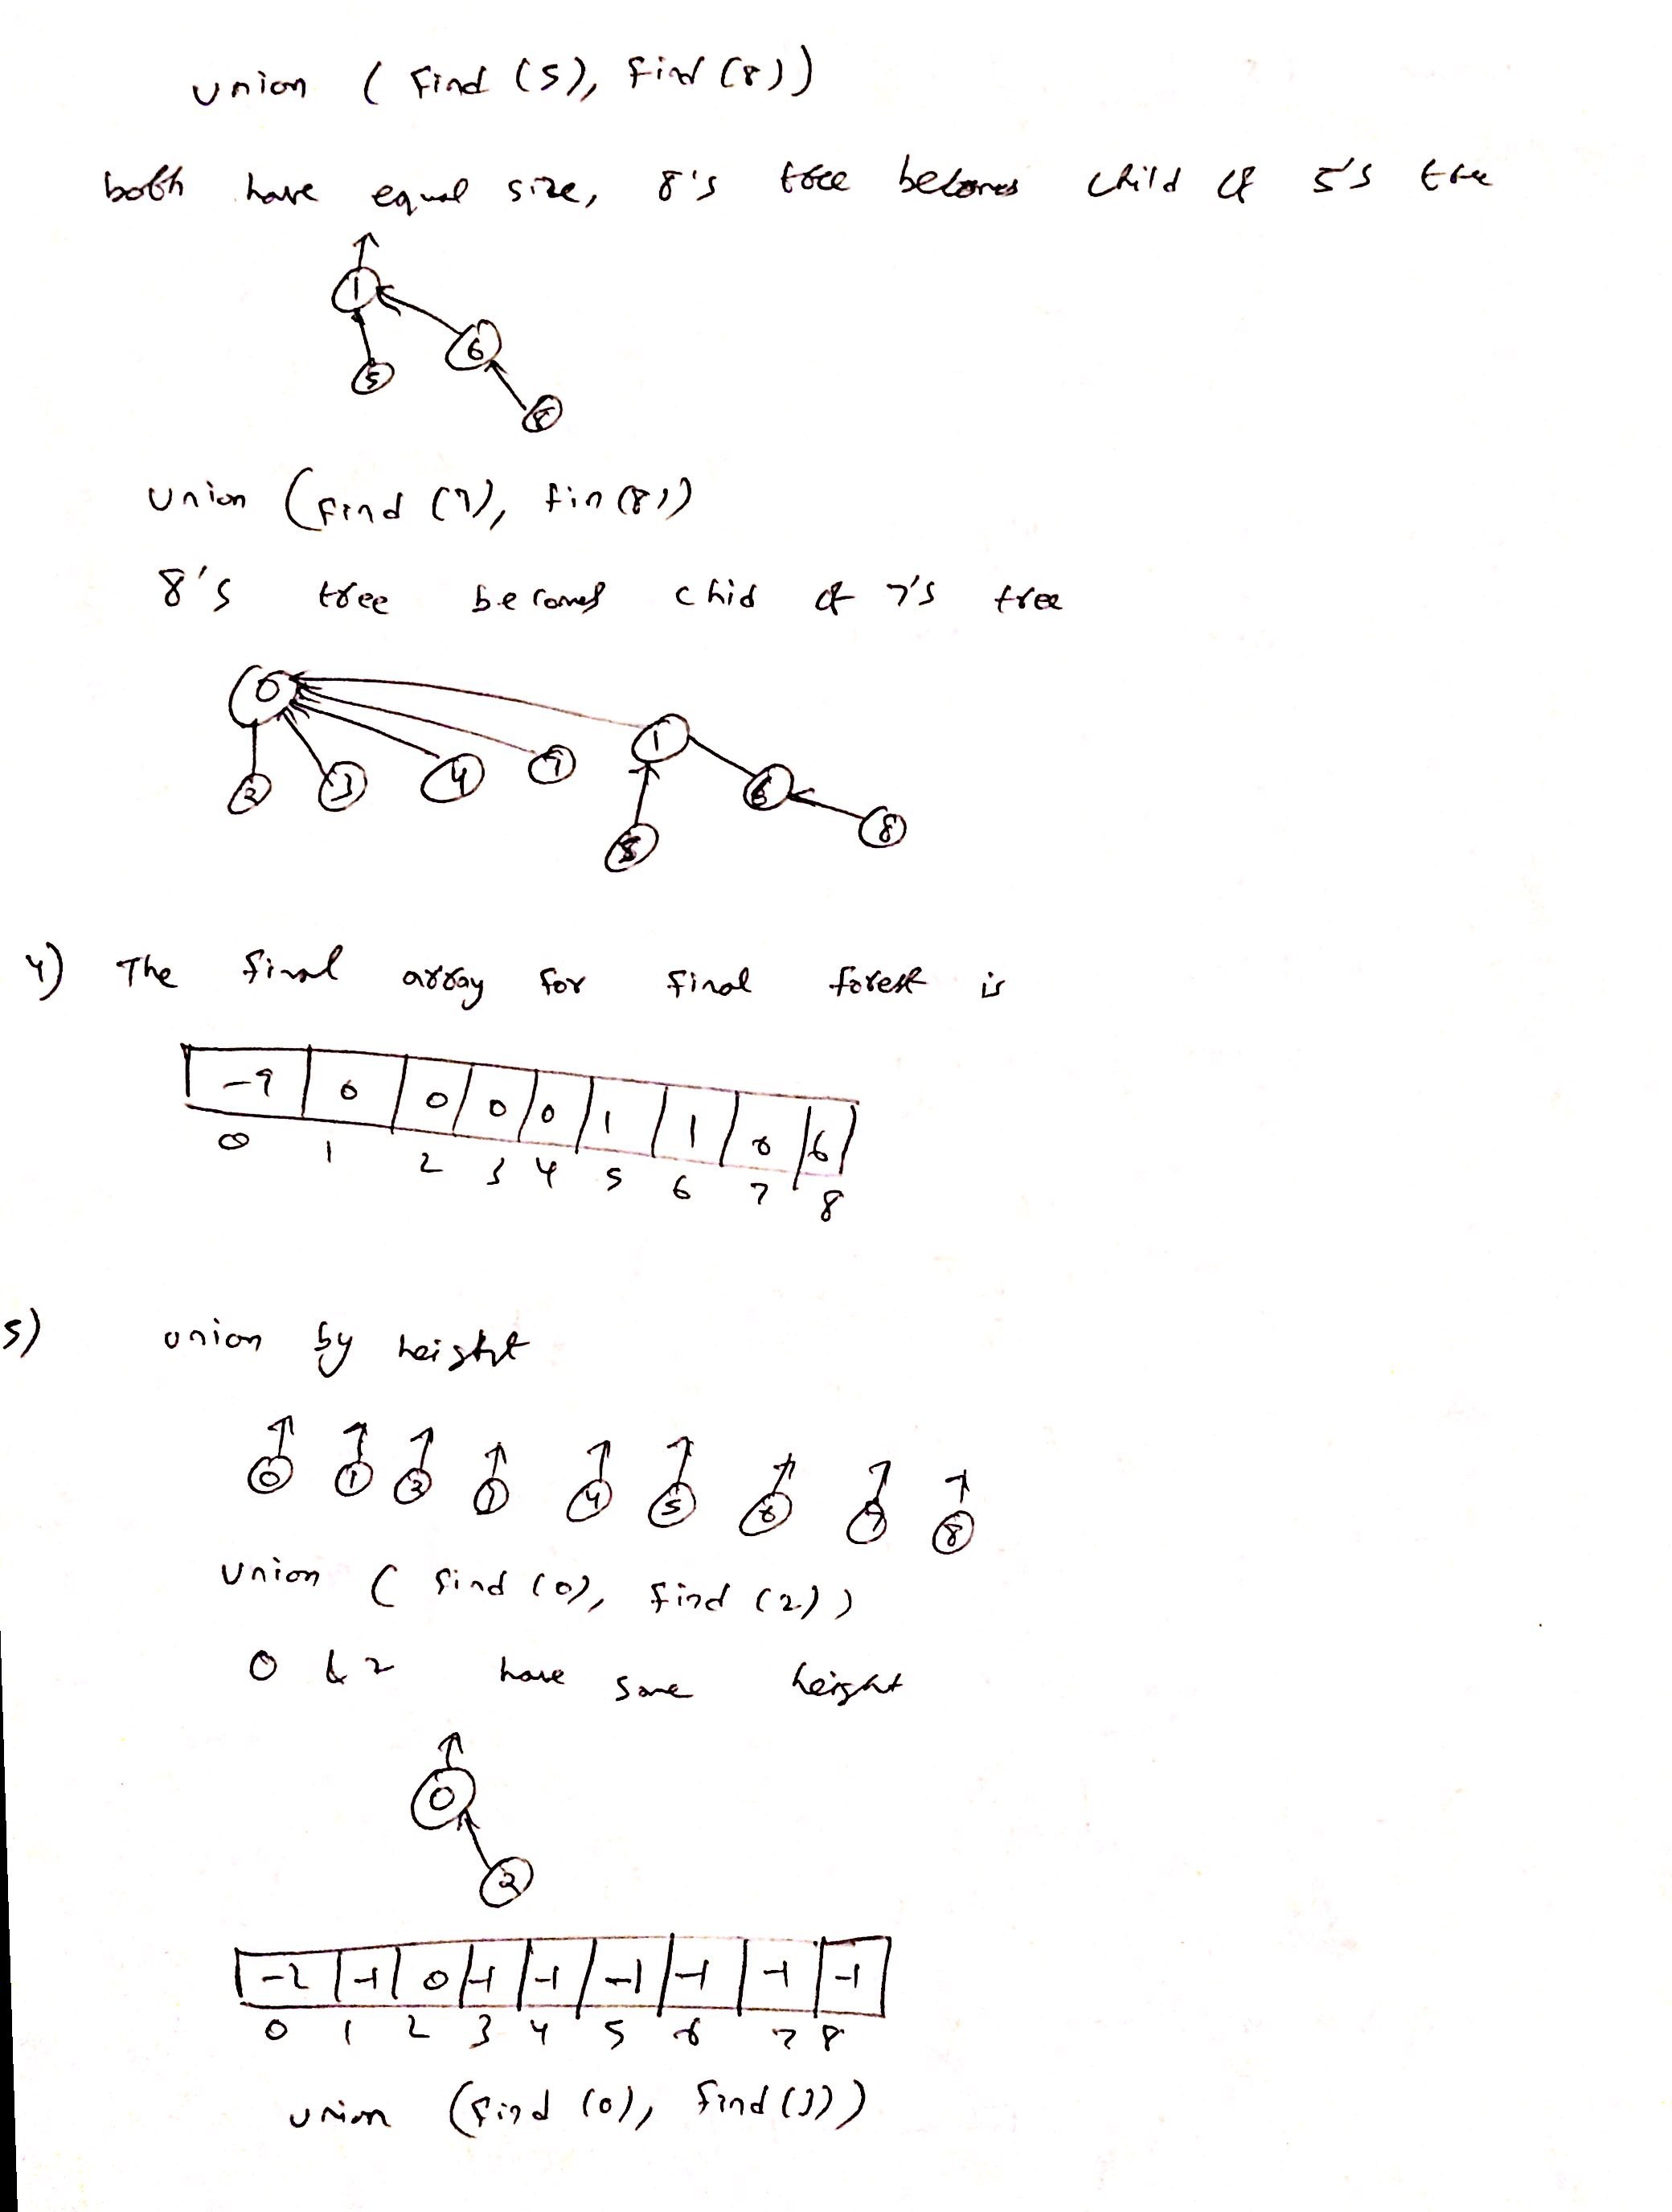 union ( find (5), find (8))
both have equal size, 8's tree becomes child of 5's tree
1
6
5
8
union (find (7), fin (8))
8's tree becomes chid of 7's tree
0
1
2 3 4 7 6
5 8
4) The final array for final forest is
-9 0 0 0 0 1 1 0 6
0 1 2 3 4 5 6 7 8
5) union by height
0 1 2 4 5 6 7 8
union ( find (0), find (2))
0 & 2 have same height
0
2
-2 -1 0 -1 -1 -1 -1 -1 -1
0 1 2 3 4 5 6 7 8
union (find (0), find (3))